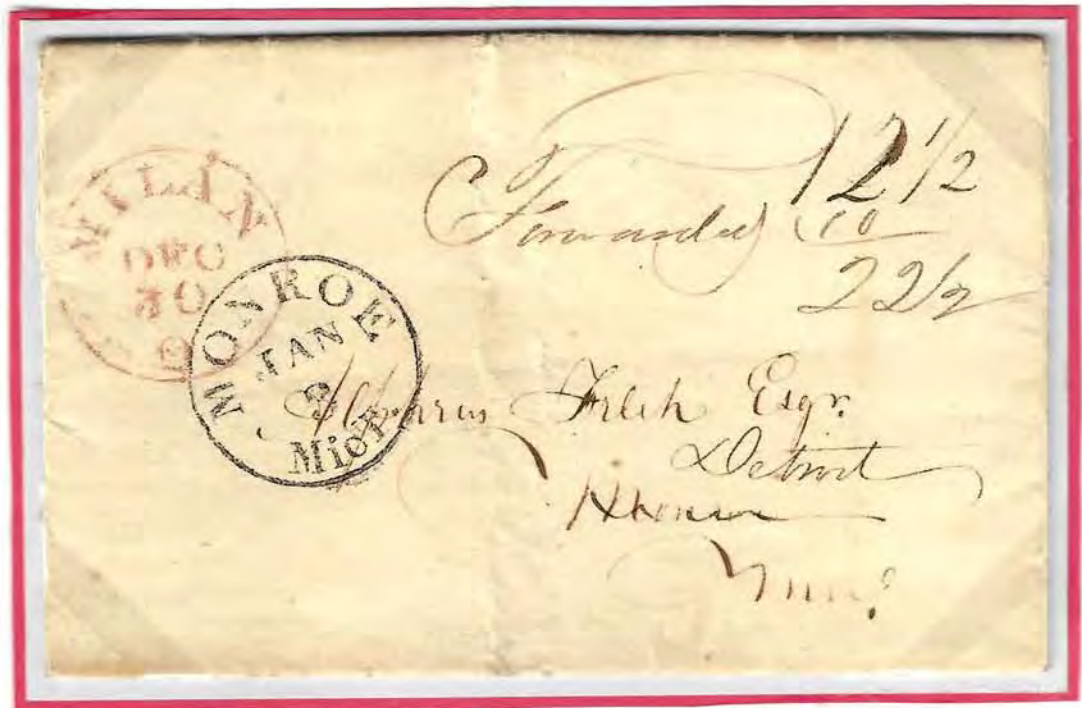 MILAN
DEC
30
O
MONROE
JAN
3
Mich
Forwarded
12 1/2
10
22 1/2
Alpheus Felch Esqr.
Detroit
Monroe